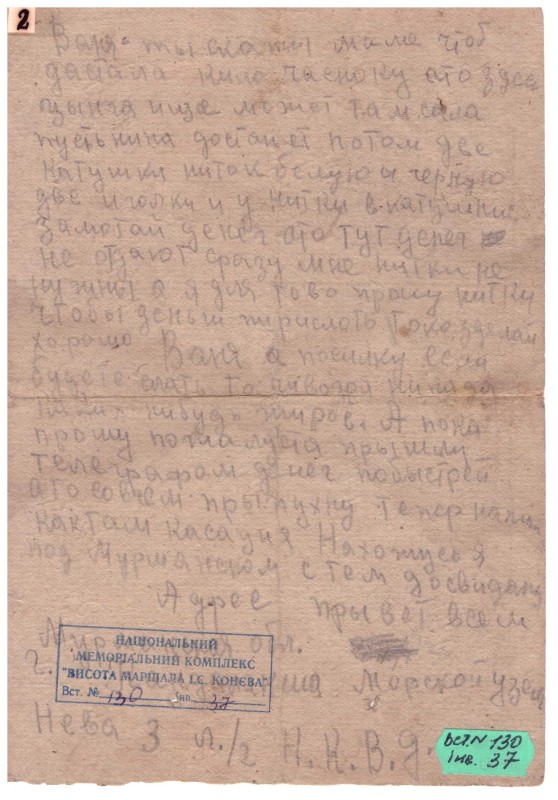 2
Ваня ты скажы маме чтоб
дастала кило часноку ато здес
цынга ище может там сала
пусть нина достанет потом две
катушки ниток белую и черную
две иголки и у нитки в катушние
замотай денег ато тут денег
не отдают сразу мне нитки не
нужны а я для тово прошу нитки
чтобы деньги прислать токо зделай
хорошо Ваня а посилку если
будете слать то
нибудь жиров. А пока
прошу пожалуста прышли
телеграфом денег побыстрей
ато совсем прыпухну тепер напиши
как там касация Нахожусь я
под Мурманском с тем досвидания
Адрес прывет всем
обл.
г. Морской узел
Нева 3 л./2 Н.К.В.Д.
НАЦІОНАЛЬНИЙ
МЕМОРІАЛЬНИЙ КОМПЛЕКС
"ВИСОТА МАРШАЛА І.С. КОНЄВА"
Вст. № 130 Інв. 37
Вст.N 130
інв. 37